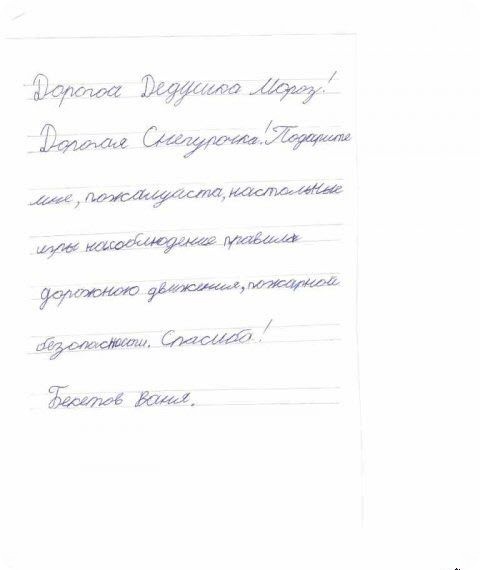 Дорогоа Дедушка Мороз!
Дорогая Снегурочка! Подарите
мне, пожалуаста, настольные
игры насоблюдение правила
дорожного движения, пожарной
безопасности. Спасиба!
Бекетов Ваня.